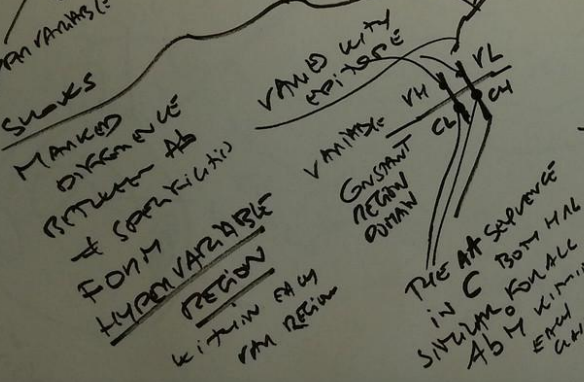 VARIABLE
SHOWS
MARKED
DIFFERENCE
BETWEEN Ab
# SPECIFICITIES
FORM
HYPERVARIABLE
REGION
WITHIN EACH
VAR REGION
VARIED WITH
EPITOPE
VH
VL
CL
CH
VARIABLE
CONSTANT
REGION
DOMAIN
THE AA SEQUENCE
IN C BOTH H&L
SIMILAR FOR ALL
AbM WITHIN
EACH